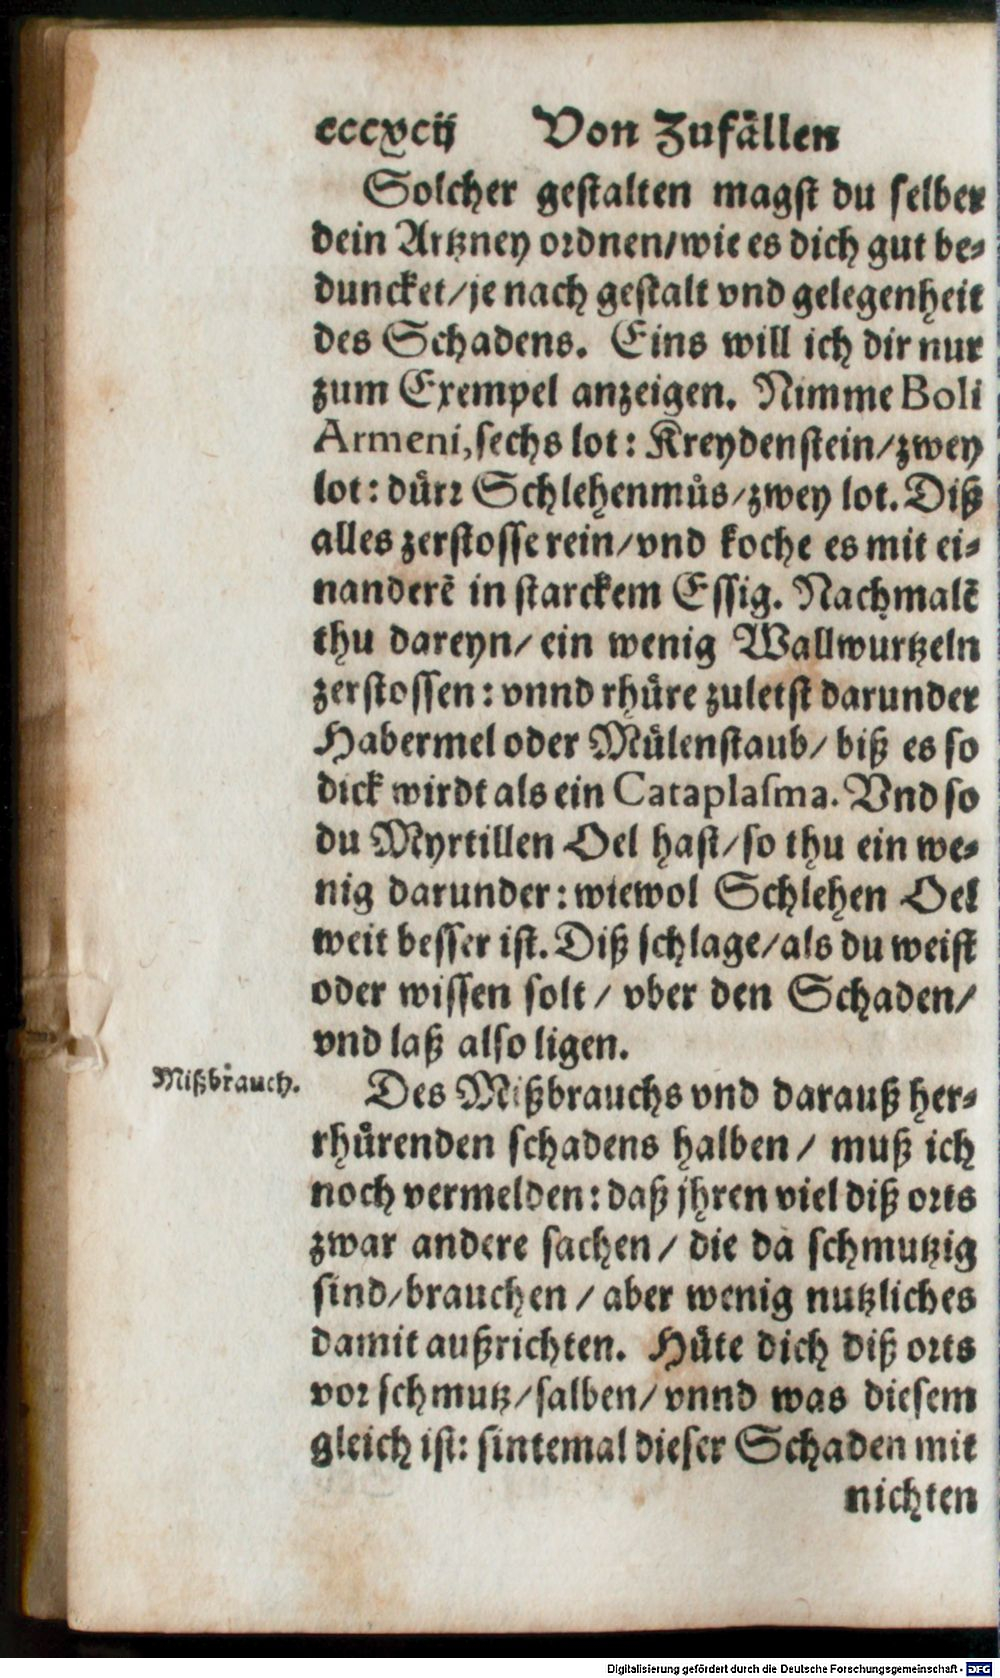 cccxcij Von Zufällen
Solcher gestalten magst du selber
dein Artzney ordnen/wie es dich gut be-
duncket/je nach gestalt vnd gelegenheit
des Schadens. Eins will ich dir nur
zum Exempel anzeigen. Nimme Boli
Armeni, sechs lot: Kreydenstein/zwey
lot: dürr Schlehenmůs/zwey lot. Diß
alles zerstosse rein/vnd koche es mit ei-
nanderē in starckem Essig. Nachmalē
thu dareyn/ ein wenig Wallwurtzeln
zerstossen: vnnd rhüre zuletst darunder
Habermel oder Mülenstaub/ biß es so
dick wirdt als ein Cataplasma. Vnd so
du Myrtillen Oel hast/so thu ein we-
nig darunder: wiewol Schlehen Oel
weit besser ist. Diß schlage/als du weist
oder wissen solt / vber den Schaden/
vnd laß also ligen.
Mißbrauch.
Des Mißbrauchs vnd darauß her-
rhürenden schadens halben / muß ich
noch vermelden: daß jhren viel diß orts
zwar andere sachen / die da schmutzig
sind/brauchen / aber wenig nutzliches
damit außrichten. Hüte dich diß orts
vor schmutz/salben/ vnnd was diesem
gleich ist: sintemal dieser Schaden mit
nichten
Digitalisierung gefördert durch die Deutsche Forschungsgemeinschaft - DFG